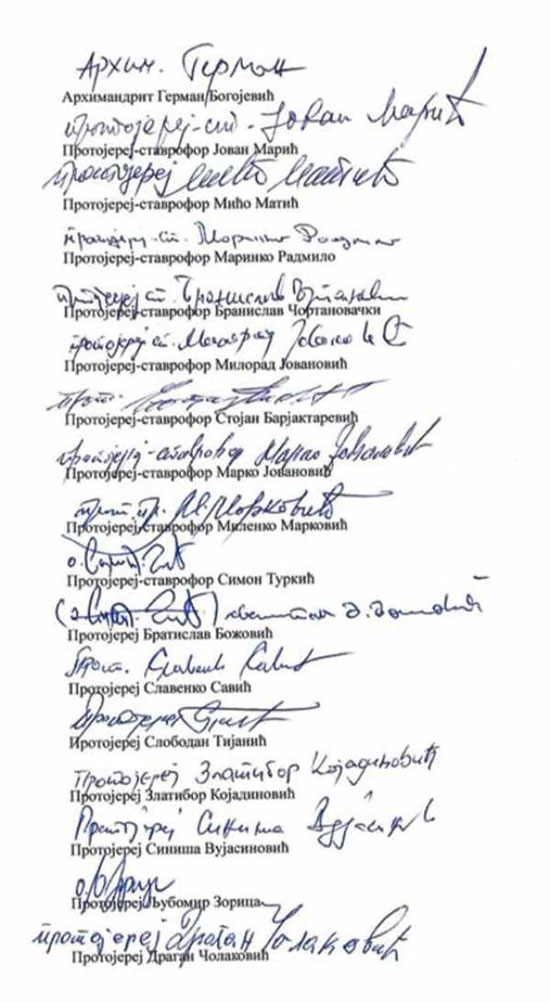 Архим. Герман
Архимандрит Герман Богојевић
протојереј-ст. Јован Марић
Протојереј-ставрофор Јован Марић
протојереј Мићо Матић
Протојереј-ставрофор Мићо Матић
протојереј-ст. Маринко Радмило
Протојереј-ставрофор Маринко Радмило
протојереј ст. Бранислав
Протојереј-ставрофор Бранислав Чортановачки
протојереј ст. Милорад Јовановић
Протојереј-ставрофор Милорад Јовановић
прот.
Протојереј-ставрофор Стојан Барјактаревић
протојереј-ставрофор Марко Јовановић
Протојереј-ставрофор Марко Јовановић
М. Марковић
Протојереј-ставрофор Миленко Марковић
о.
Протојереј-ставрофор Симон Туркић
Протојереј Братислав Божовић
Прот. Славенко Савић
Протојереј Славенко Савић
Протојереј
Иротојереј Слободан Тијанић
Протојереј Златибор Којадиновић
Протојереј Златибор Којадиновић
Протојереј Синиша
Протојереј Синиша Вујасиновић
о.
Протојереј Љубомир Зорица
протојереј Драган Чолаковић
Протојереј Драган Чолаковић